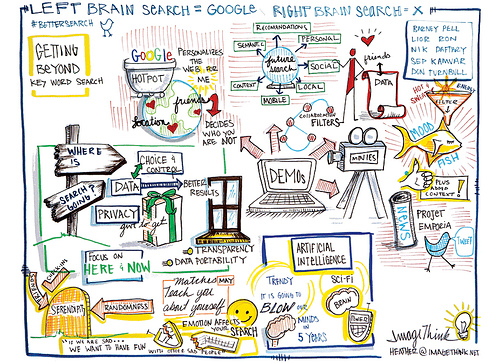 LEFT BRAIN SEARCH = GOOGLE RIGHT BRAIN SEARCH = X
#BETTERSEARCH
GETTING
BEYOND
KEY WORD SEARCH
GOOGLE
HOTPOT
PERSONALIZES
THE WEB FOR
ME
friends
location
DECIDES
WHO YOU
ARE NOT
RECOMENDATIONS
SEMANTIC
PERSONAL
future
search
SOCIAL
CONTEXT
LOCAL
MOBILE
friends
DATA
BARNEY PELL
LIOR RON
NIK DAFTARY
SEP KAMVAR
DON TURNBULL
HOT &
ENERGY
FILTER
COLLABORATIVE
FILTERS
MOOD
FISH
WHERE
IS
SEARCH?
GOING
CHOICE &
CONTROL
DATA
BETTER
RESULTS
PRIVACY
give to get
TRANSPARENCY
DATA PORTABILITY
FOCUS ON
HERE & NOW
DEMOs
MOVIES
PLUS
ADDED
CONTEXT!
NEWS
PROJET
EMPORIA
TWEET
SERENDIPITY
RANDOMNESS
Matches MAY
Teach you
about yourself
EMOTION AFFECTS
your SEARCH
"IF WE ARE SAD...
WE WANT TO HAVE FUN
WITH OTHER SAD PEOPLE"
ARTIFICIAL
INTELLIGENCE
TRENDY
IT IS GOING TO
BLOW OUR
MINDS IN
5 YEARS
SCI-FI
BRAIN
INFO
ImageThink
HEATHER@IMAGETHINK.NET